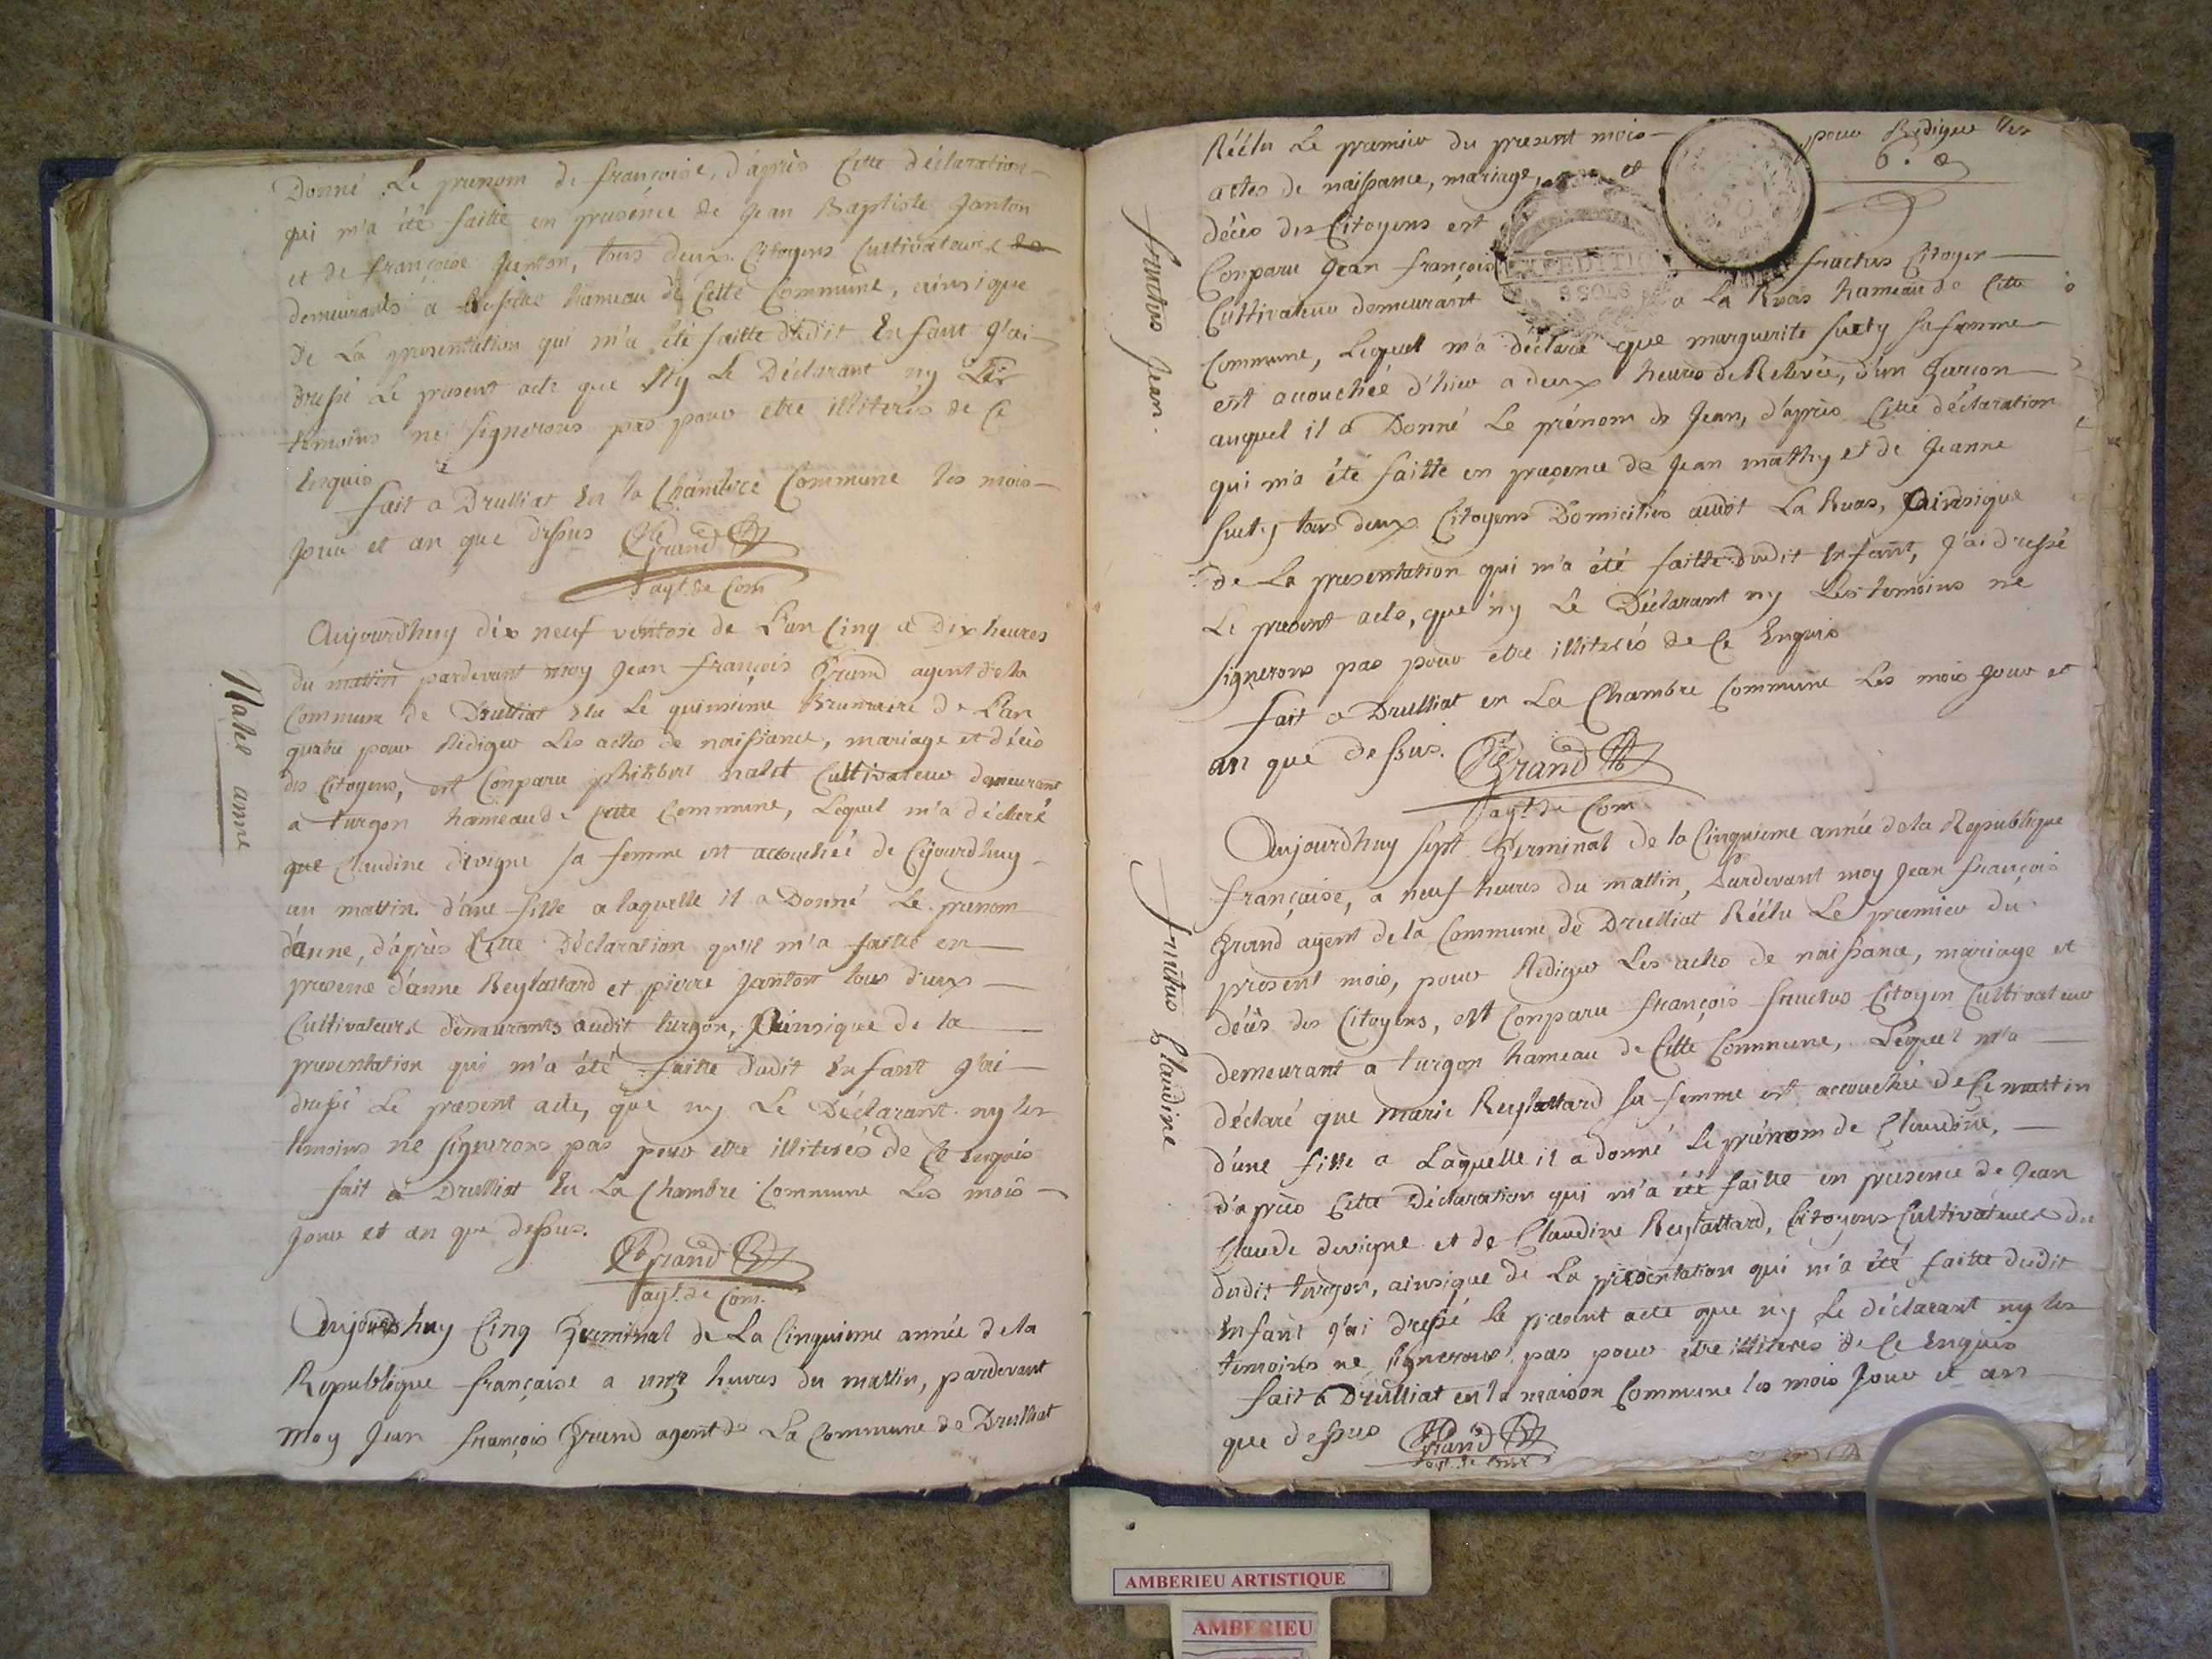 Donné Le prenom de françoise, d'après Cette déclaration
qui m'a été faitte en presence de Jean Baptiste Janton
et de françoise Janton, tous deux Citoyens Cultivateurs
demeurants a hameau de Cette Commune, ainsi que
de La presentation qui m'a été faitte dudit Enfant J'ai
dressé Le present acte que Ny Le Déclarant ny Les
temoins ne signerons pas pour etre illiterés de Ce
Enquis
fait a Drulliat En la Chambre Commune les mois
Jour et an que dessus Grand
agt. de Com
Natel anne
Aujourdhuy dix neuf ventose de L'an Cinq a Dix heures
du mattin pardevant moy Jean françois Grand agent de la
Commune de Drulliat Elu Le quinsième Brumaire de L'an
quatre pour Rediger Les actes de naissance, mariage et décès
des Citoyens, est Conparu philibert natel Cultivateur demeurant
a turgon hameau de Cette Commune, Lequel m'a déclaré
que Claudine divigne sa femme est accouchée de Cejourdhuy
au mattin d'une fille a laquelle il a Donné Le prenom
d'anne, d'après Cette Déclaration qu'il m'a faitte en
presence d'anne Reylattard et pierre Janton tous deux
Cultivateurs demeurants audit turgon, Ainsique de la
presentation qui m'a été faitte dudit Enfant J'ai
dressé Le present acte, que ny Le Déclarant ny les
temoins ne signerons pas pour etre illiterés de Ce Enquis
fait a Drulliat En La Chambre Commune Les mois
Jour et an que dessus.
Grand
agt. de Com.
Aujourdhuy Cinq Germinal de La Cinquieme année de la
Republique française a onze heures du mattin, pardevant
Moy Jean françois Grand agent de La Commune de Drulliat
Réélu Le premier du present mois pour Rediger les
actes de naissance, mariage, et
décès des Citoyens est
fructus Jean.
Conparu Jean françois fructus Citoyen
Cultivateur demeurant a La Ruas hameau de Cette
Commune, Lequel m'a déclaré que marguerite suety sa femme
est accouchée d'hier a deux heures de Relevée, d'un Garcon
auquel il a Donné Le prénom de Jean, d'après Cette déclaration
qui m'a été faitte en presence de Jean mathy et de Jeanne
suety tous deux Citoyens Domiciliés audit La Ruas, Ainsique
de La presentation qui m'a été faitte dudit Enfant, J'ai dressé
Le present acte, que ny Le Déclarant ny Les temoins ne
signerons pas pour etre illiterés de Ce Enquis
fait a Drulliat en La Chambre Commune Les mois Jour et
an que dessus. Grand
agt. de Com
fructus Claudine
Aujourdhuy sept Germinal de la Cinquieme année de la Republique
française, a neuf heures du mattin, Pardevant moy Jean françois
Grand agent de la Commune de Drulliat Réélu Le premier du
present mois, pour Rediger Les actes de naissance, mariage et
décès des Citoyens, est Conparu françois fructus Citoyen Cultivateur
demeurant a turgon hameau de Cette Commune, Lequel m'a
déclaré que Marie Reylattard sa femme est accouchée de Ce mattin
d'une fille a Laquelle il a donné Le prénom de Claudine,
d'après Cette Déclaration qui m'a été faitte en presence de Jean
Claude devigne et de Claudine Reylattard, Citoyens Cultivateurs du
dudit turgon, ainsique de La presentation qui m'a été faitte dudit
Enfant J'ai dressé Le present acte que ny Le déclarant ny les
temoins ne signerons pas pour etre illiteres de Ce Enquis
fait a Drulliat en la maison Commune les mois Jour et an
que dessus Grand
agt. de Com
AMBERIEU ARTISTIQUE
AMBERIEU